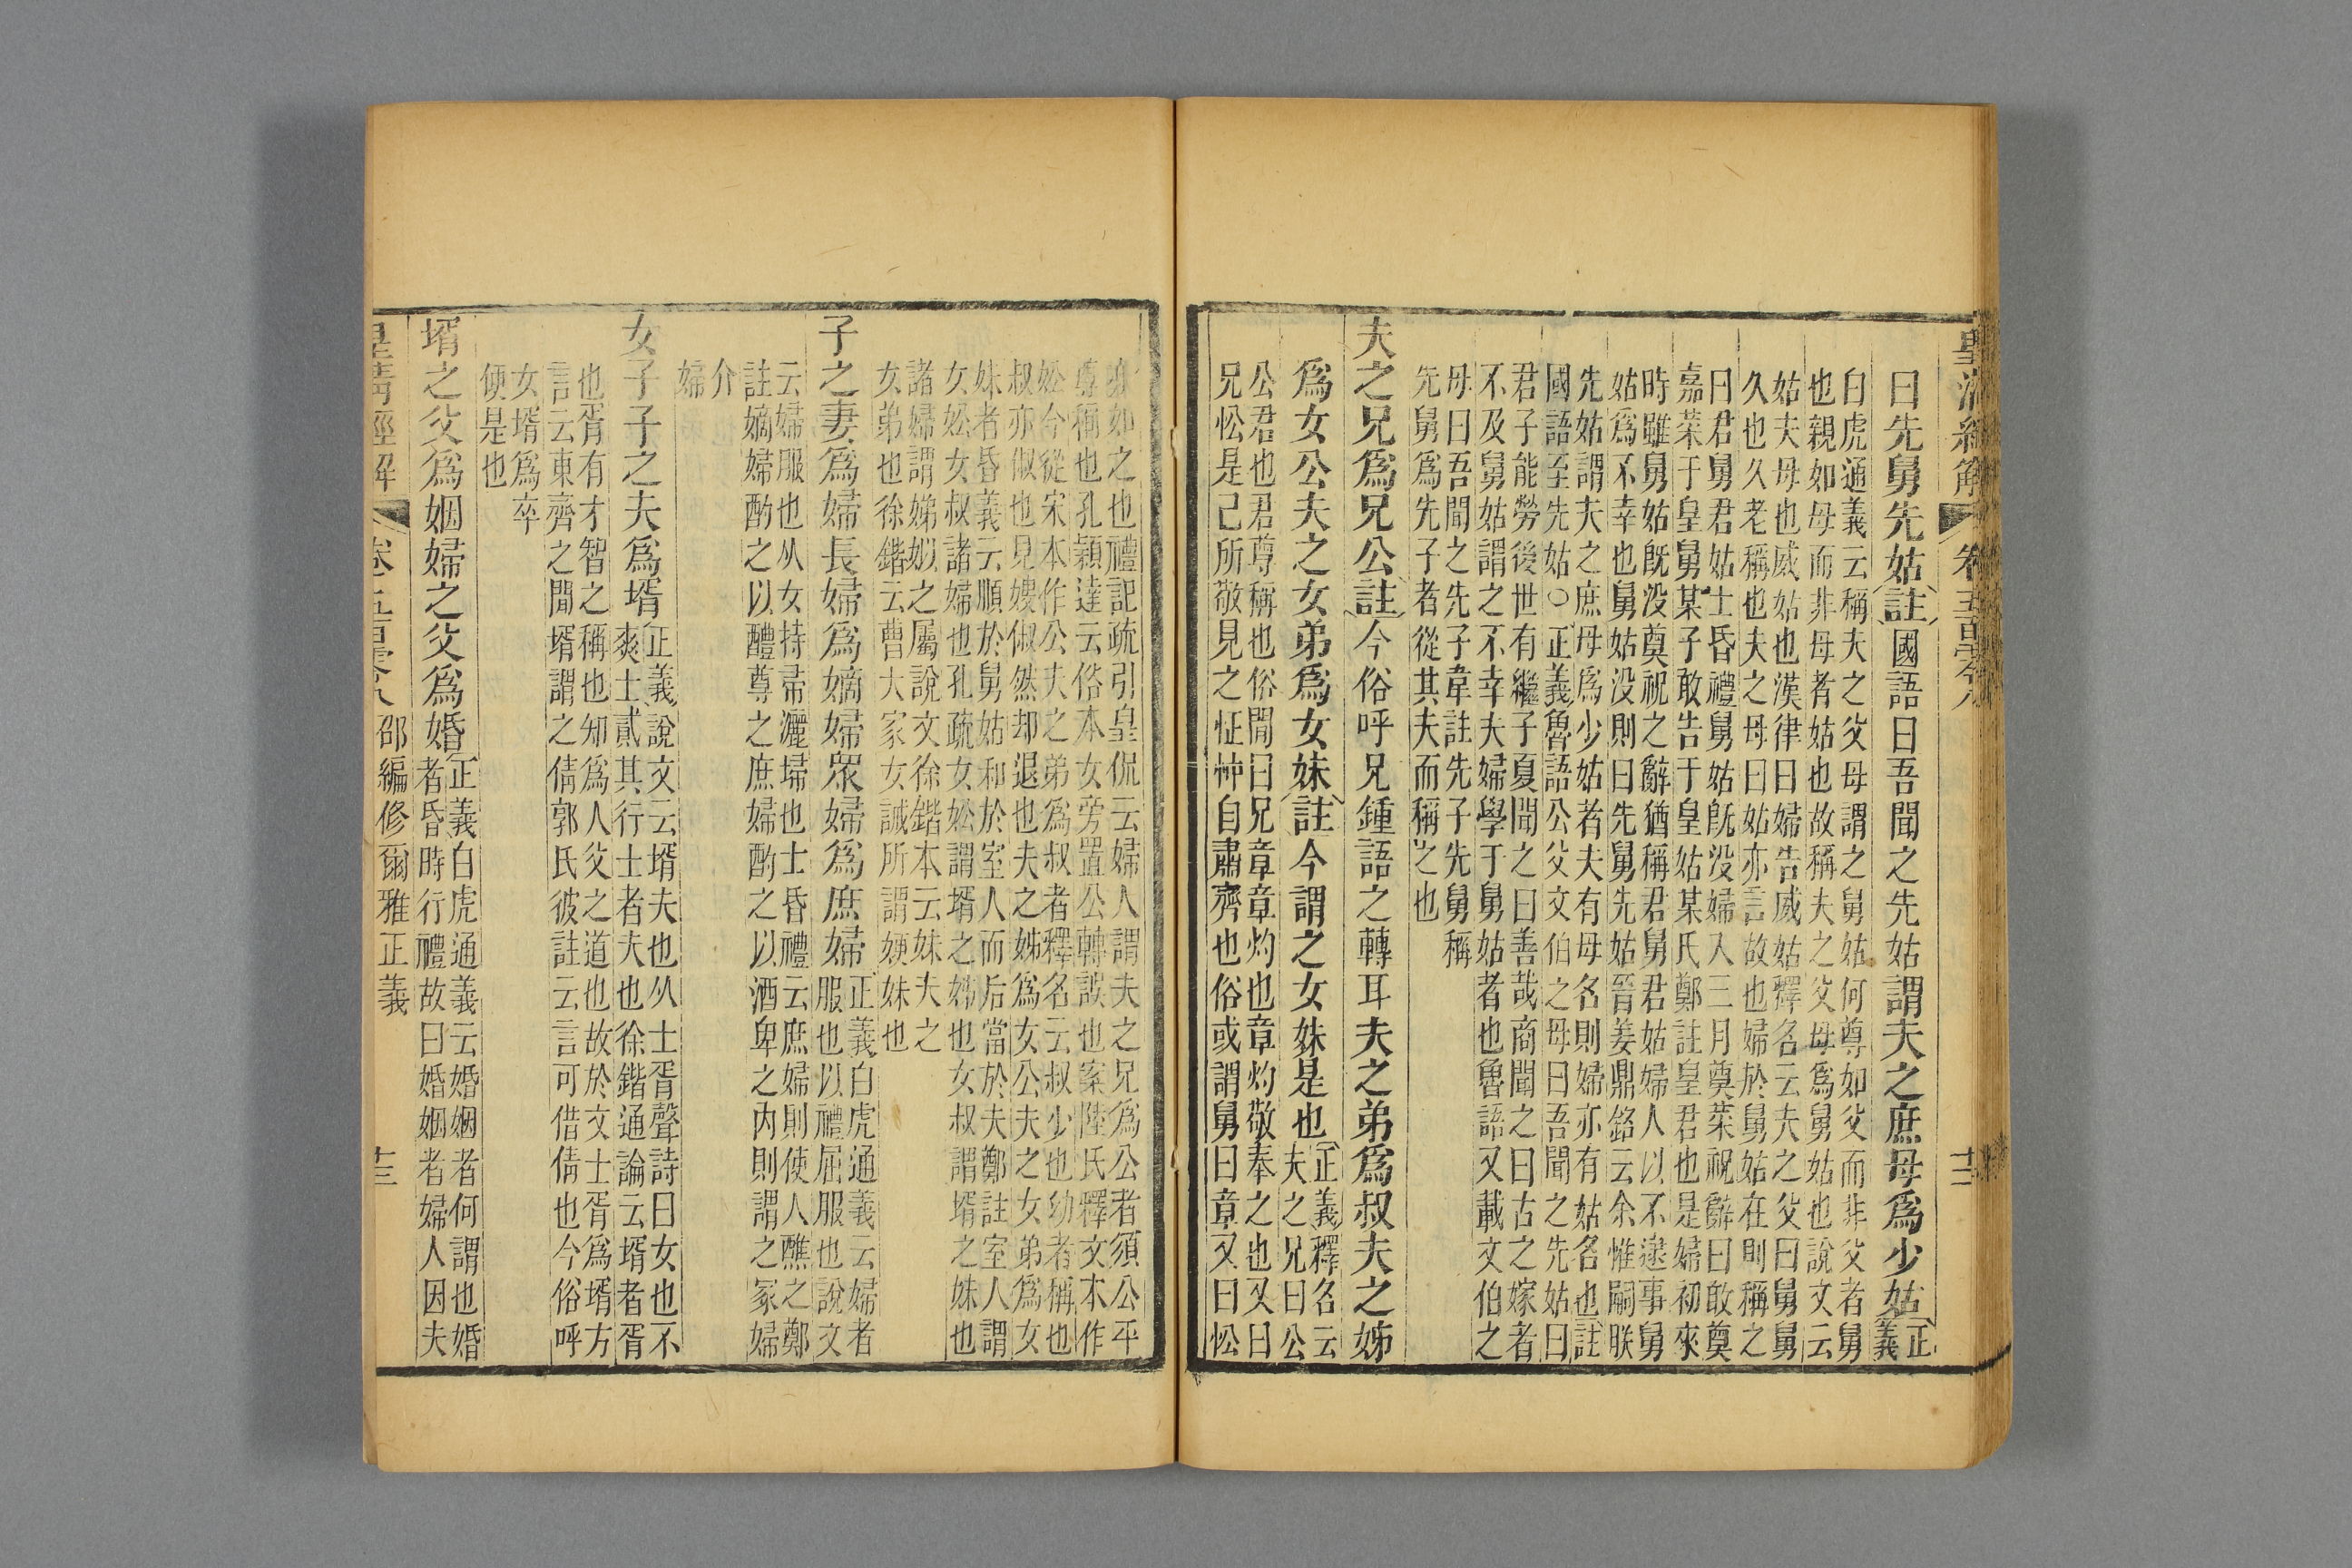 皇清經解 卷五百零八 十二
曰先舅先姑註國語曰吾聞之先姑謂夫之庶母爲少姑正義
白虎通義云稱夫之父母謂之舅姑何尊如父而非父者舅
也親如母而非母者姑也故稱夫之父母爲舅姑也說文云
姑夫母也威姑也漢律曰婦告威姑釋名云夫之父曰舅舅
久也久老稱也夫之母曰姑亦言故也婦於舅姑在則稱之
曰君舅君姑士昏禮舅姑旣没婦入三月奠菜祝辭曰敢奠
嘉菜于皇舅某子敢告于皇姑某氏鄭註皇君也是婦初來
時雖舅姑旣没奠祝之辭猶稱君舅君姑婦人以不逮事舅
姑爲不幸也舅姑没則曰先舅先姑晉姜鼎銘云余惟嗣朕
先姑謂夫之庶母爲少姑者夫有母名則婦亦有姑名也註
國語至先姑○正義魯語公父文伯之母曰吾聞之先姑曰
君子能勞後世有繼子夏聞之曰善哉商聞之曰古之嫁者
不及舅姑謂之不幸夫婦學于舅姑者也魯語又載文伯之
母曰吾聞之先子韋註先子先舅稱
先舅爲先子者從其夫而稱之也
夫之兄爲兄公註今俗呼兄鍾語之轉耳夫之弟爲叔夫之姊
爲女公夫之女弟爲女妹註今謂之女妹是也正義釋名云夫之兄曰公
公君也君尊稱也俗間曰兄章章灼也章灼敬奉之也又曰
兄忪是己所敬見之怔忡自肅齊也俗或謂舅曰章又曰忪
亦如之也禮記疏引皇侃云婦人謂夫之兄爲公者須公平
尊稱也孔穎達云俗本女旁置公轉誤也案陸氏釋文本作
妐今從宋本作公夫之弟爲叔者釋名云叔少也幼者稱也
叔亦俶也見嫂俶然却退也夫之姊爲女公夫之女弟爲女
妹者昏義云順於舅姑和於室人而后當於夫鄭註室人謂
女妐女叔諸婦也孔疏女妐謂壻之姊也女叔謂壻之妹也
諸婦謂娣姒之屬說文徐鍇本云妹夫之
女弟也徐鍇云曹大家女誡所謂婹妹也
子之妻爲婦長婦爲嫡婦衆婦爲庶婦正義白虎通義云婦者服也以禮屈服也說文
云婦服也从女持帚灑埽也士昏禮云庶婦則使人醮之鄭
註嫡婦酌之以醴尊之庶婦酌之以酒卑之内則謂之冢婦
介
婦
女子子之夫爲壻正義說文云壻夫也从士胥聲詩曰女也不爽士貳其行士者夫也徐鍇通論云壻者胥
也胥有才智之稱也知爲人父之道也故於文士胥爲壻方
言云東齊之閒壻謂之倩郭氏彼註云言可借倩也今俗呼
女壻爲卒
便是也
壻之父爲姻婦之父爲婚正義白虎通義云婚姻者何謂也婚者昏時行禮故曰婚姻者婦人因夫
皇清經解 卷五百零八 邵編修爾雅正義 十三